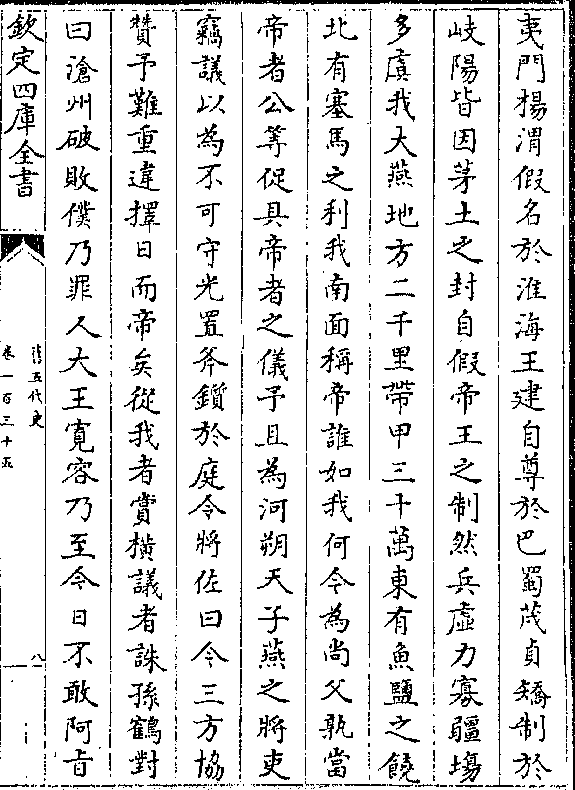 夷門楊渭假名於淮海王建自尊於巴蜀茂貞矯制於
岐陽皆因茅土之封自假帝王之制然兵虛力寡疆埸
多虞我大燕地方二千里帶甲三十萬東有魚鹽之饒
北有塞馬之利我南面稱帝誰如我何今為尚父孰當
帝者公等促具帝者之儀予且為河朔天子燕之將吏
竊議以為不可守光置斧鑕於庭令將佐曰今三方協
贊予難重違擇日而帝矣從我者賞橫議者誅孫鶴對
曰滄州破敗僕乃罪人大王寛容乃至今日不敢阿旨
欽定四庫全書
舊五代史
卷一百三十五
八